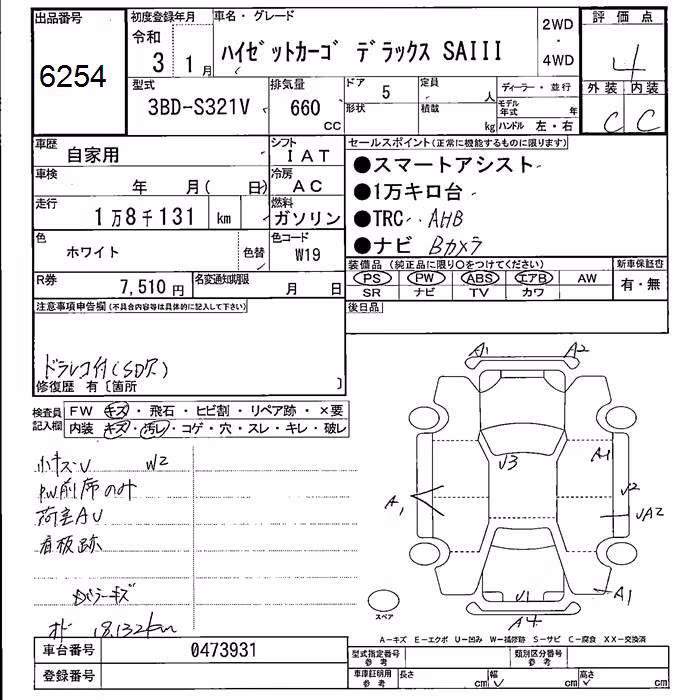 出品番号 6254
初度登録年月 令和 3 1月
車名・グレード ハイゼットカーゴ デラックス SAIII
2WD ・ 4WD
評価点 4
外装 内装
C C
型式 3BD-S321V
排気量 660 CC
ドア 5
形状
定員 人
積載 kg
ディーラー・並行
モデル年式 年
ハンドル 左・右
車歴 自家用
シフト IAT
車検 年 月( 日)
冷房 AC
走行 1万8千131 km
燃料 ガソリン
色 ホワイト 色替
色コード W19
R券 7,510円
名変通知期限 月 日
セールスポイント(正常に機能するものに限ります)
●スマートアシスト
●1万キロ台
●TRC AHB
●ナビ Bカメラ
装備品(純正品に限り○をつけてください)
PS PW ABS エアB AW
SR ナビ TV カワ
新車保証書 有・無
後日品
注意事項申告欄(不具合内容等は具体的に記入して下さい)
ドラレコ付(SD欠)
修復歴 有〔箇所 〕
検査員記入欄
FW キズ・飛石・ヒビ割・リペア跡・×要
内装 キズ・汚レ・コゲ・穴・スレ・キレ・破レ
小キズU W2
PW前席のみ
荷室AU
看板跡
バラーキズ
オド 18,132km
A1 A2
U3
A1
A1
U2
UA2
U1
A1
A4
スペア
A-キズ E-エクボ U-凹み W-補修跡 S-サビ C-腐食 XX-交換済
車台番号 0473931
登録番号
型式指定番号 参考
類別区分番号 参考
車庫証明用 参考 長さ cm 幅 cm 高さ cm